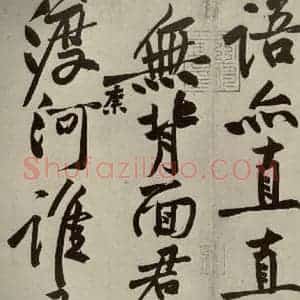 語亦直直
無背面君
素
渡河誰
Shufaziliao.com